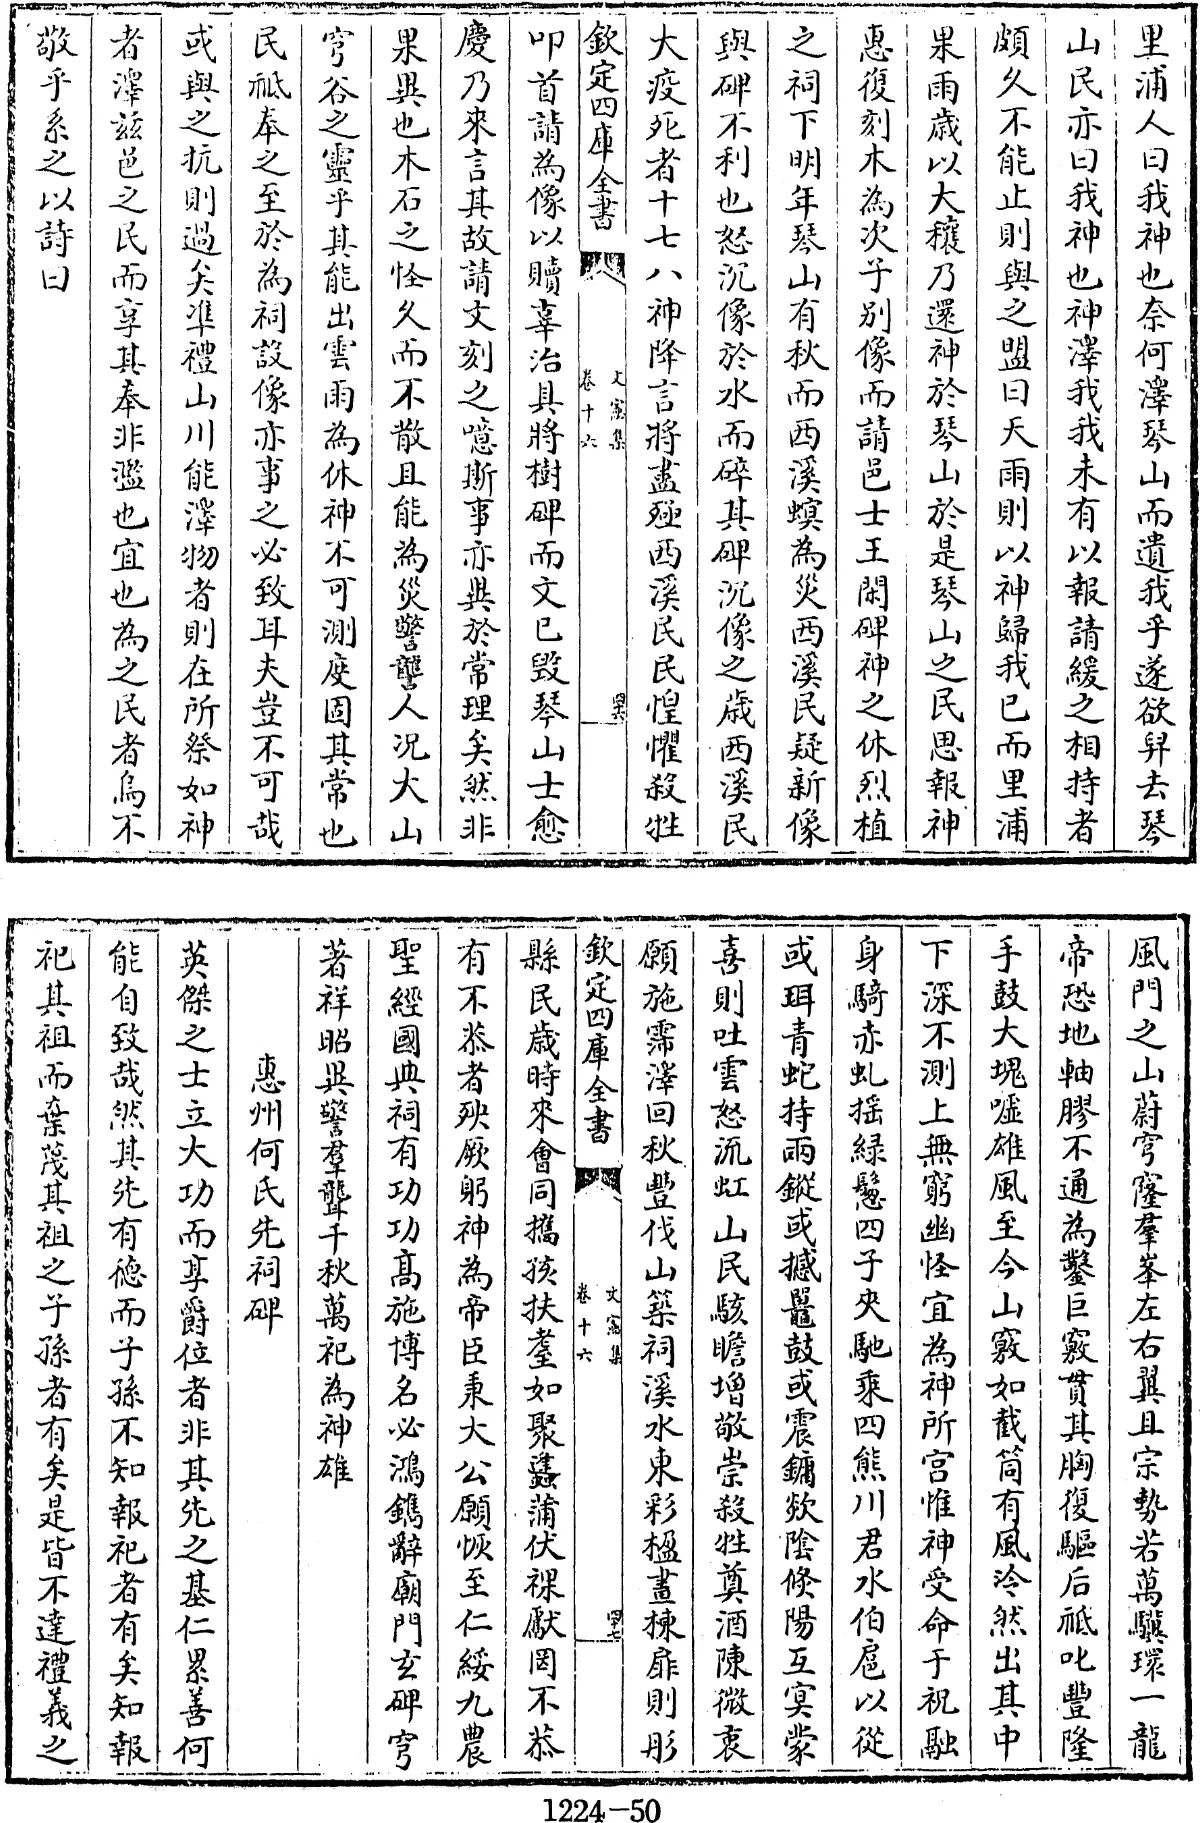 里浦人曰我神也奈何澤琴山而遺我乎遂欲舁去琴
山民亦曰我神也神澤我我未有以報請緩之相持者
頗久不能止則與之盟曰天雨則以神歸我已而里浦
果雨歲以大穰乃還神於琴山於是琴山之民思報神
惠復刻木為次子別像而請邑士王閑碑神之休烈植
之祠下明年琴山有秋而西溪螟為災西溪民疑新像
與碑不利也怒沉像於水而碎其碑沉像之歲西溪民
大疫死者十七八神降言將盡殛西溪民民惶懼殺牲
欽定四庫全書
文憲集
卷十六
四六
叩首請為像以贖辜治具將樹碑而文已毀琴山士愈
慶乃來言其故請文刻之噫斯事亦異於常理矣然非
果異也木石之怪久而不散且能為災警讋人况大山
穹谷之靈乎其能出雲雨為休神不可測度固其常也
民祗奉之至於為祠設像亦事之必致耳夫豈不可哉
或與之抗則過矣凖禮山川能澤物者則在所祭如神
者澤兹邑之民而享其奉非濫也宜也為之民者烏不
敬乎系之以詩曰
風門之山蔚穹窿羣峯左右翼且宗勢若萬驥環一龍
帝恐地軸膠不通為鑿巨竅貫其胸復驅后祗叱豐隆
手鼓大塊噓雄風至今山竅如截筒有風泠然出其中
下深不測上無窮幽怪宜為神所宫惟神受命于祝融
身騎赤虬摇緑鬉四子夾馳乘四熊川君水伯扈以從
或珥青蛇持兩鏦或撼鼉鼓或震鏞欻陰倐陽互㝠蒙
喜則吐雲怒流虹山民駭瞻增敬崇殺牲奠酒陳微衷
願施霈澤回秋豐伐山築祠溪水東彩楹畫棟扉則彤
欽定四庫全書
文憲集
卷十六
四七
縣民歲時來會同攜孩扶耋如聚蠭蒲伏祼獻罔不恭
有不恭者殃厥躬神為帝臣秉大公願恢至仁綏九農
聖經國典祠有功功髙施博名必鴻鐫辭廟門玄碑穹
著祥昭異警羣聾千秋萬祀為神雄
惠州何氏先祠碑
英傑之士立大功而享爵位者非其先之基仁累善何
能自致哉然其先有德而子孫不知報祀者有矣知報
祀其祖而棄蔑其祖之子孫者有矣是皆不達禮義之
1224-50